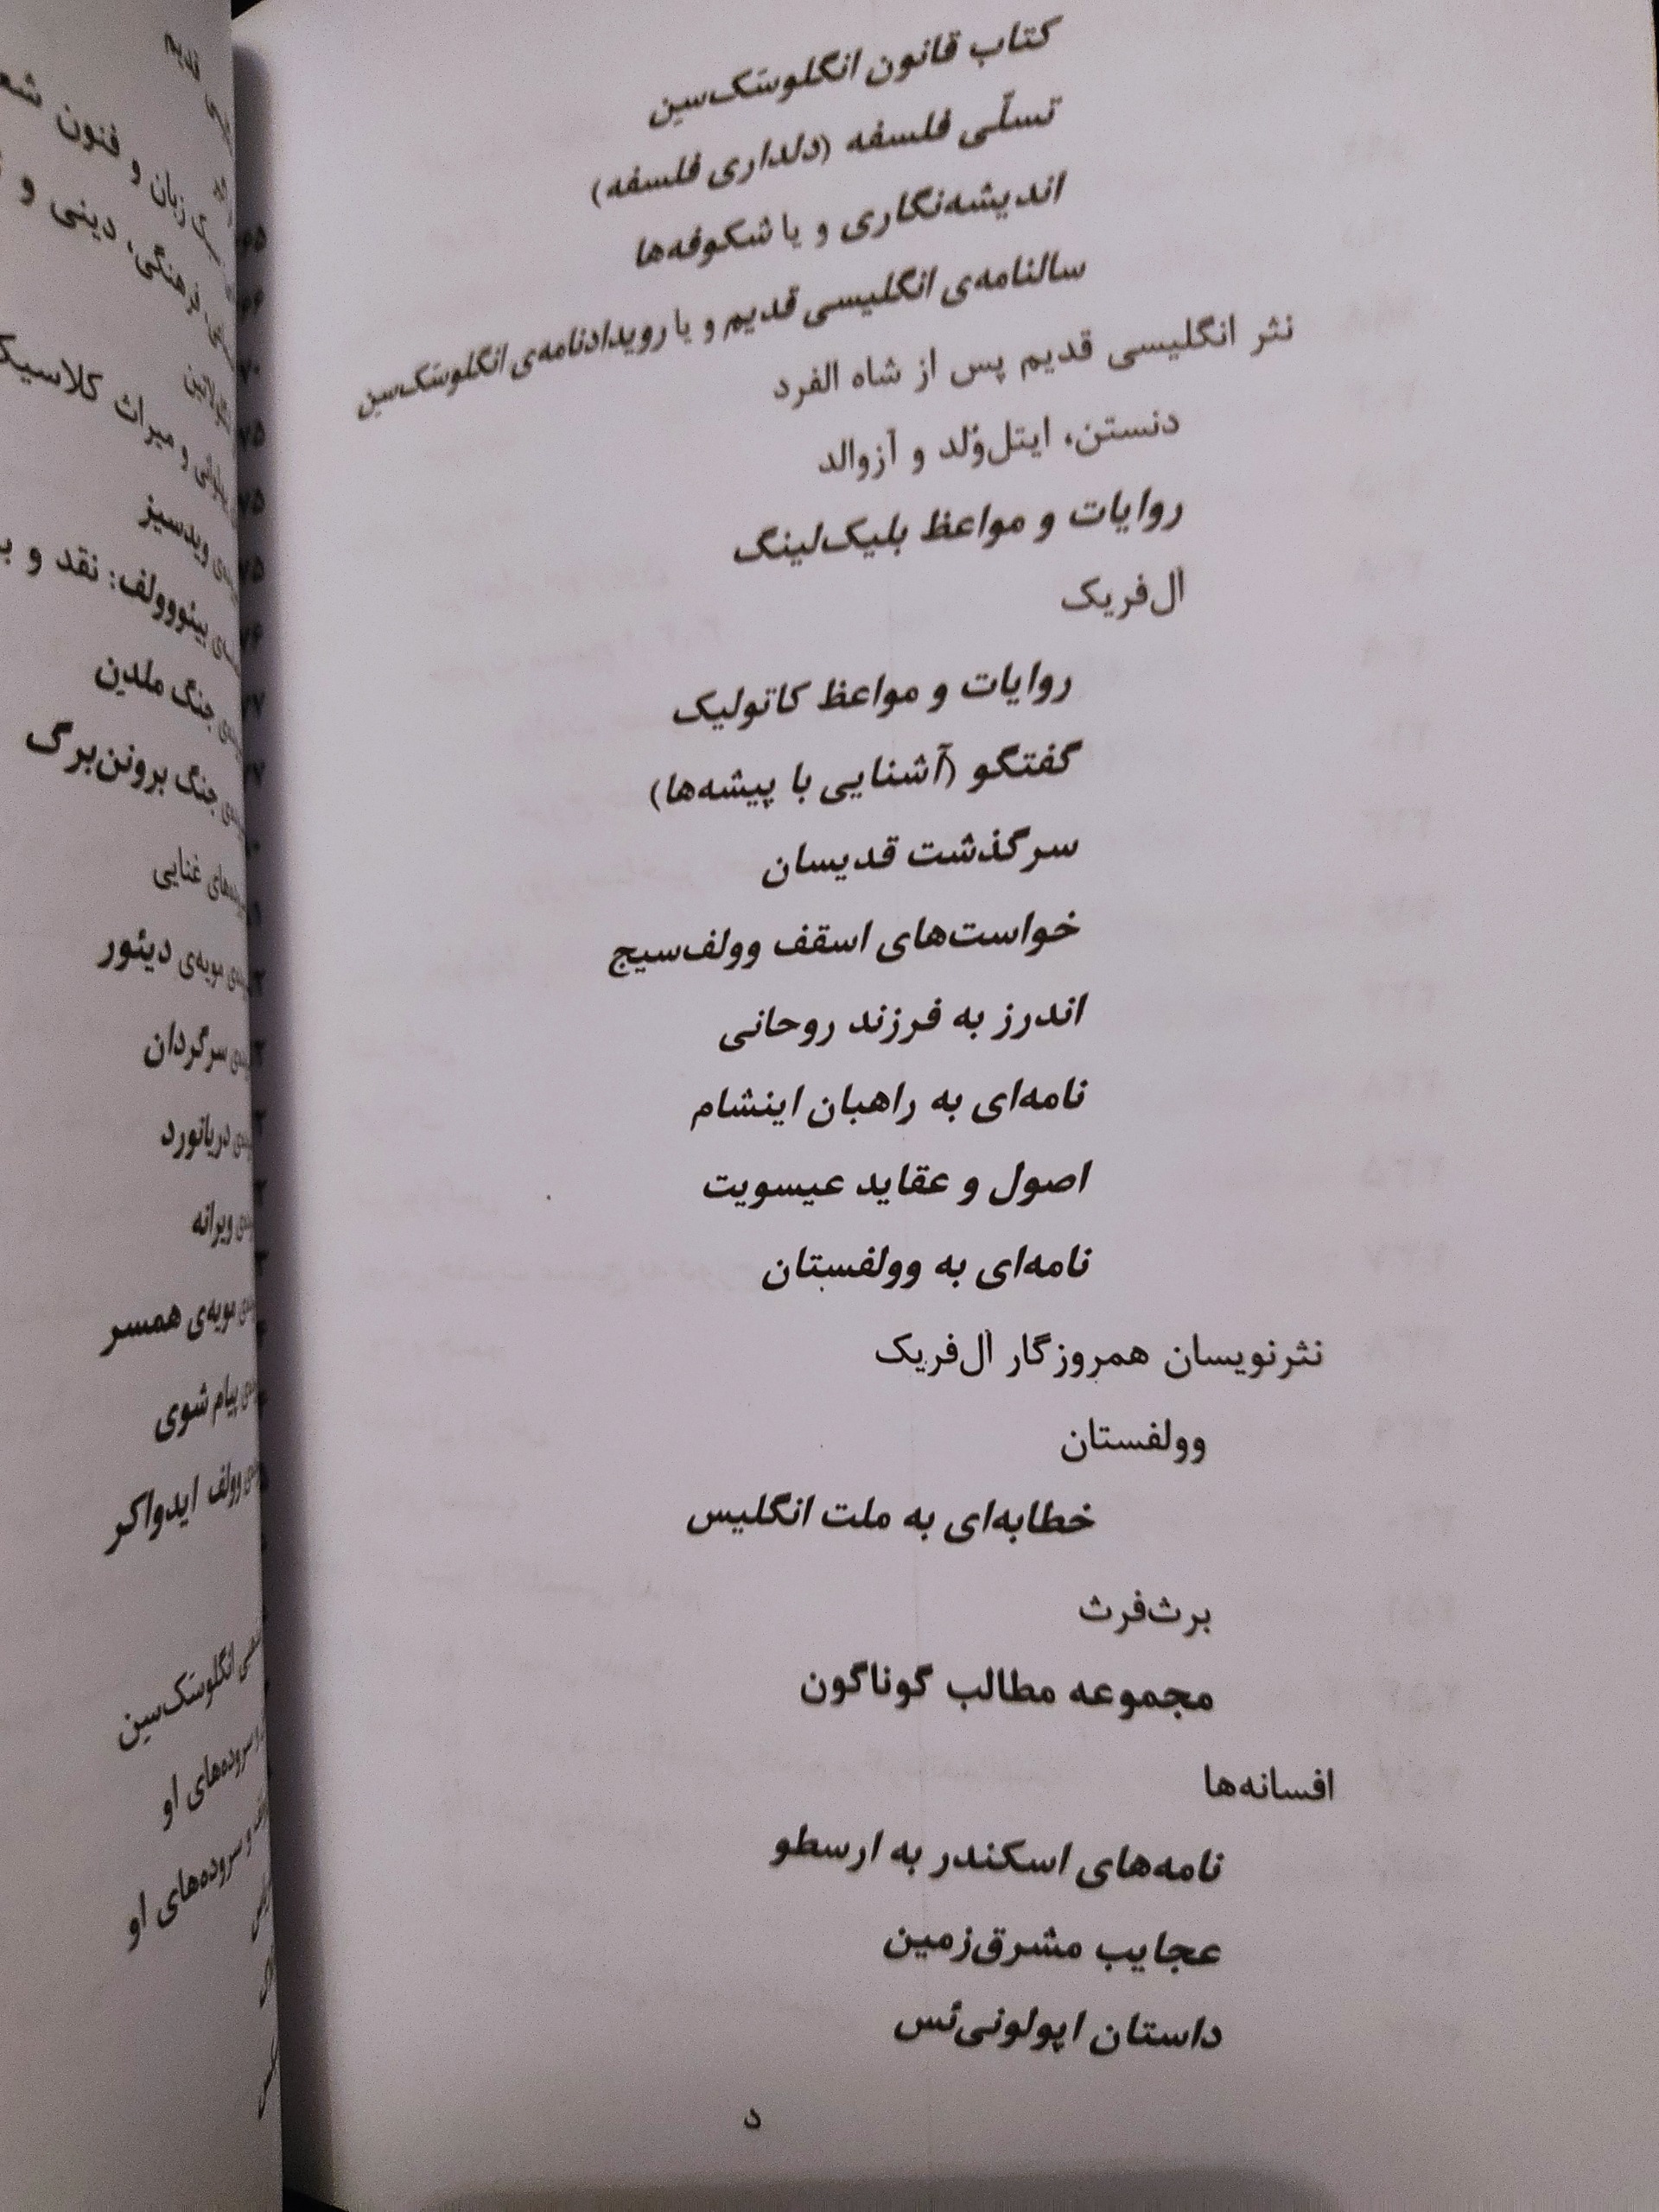 کتاب قانون انگلوسَک‌سین
تسلّی فلسفه (دلداری فلسفه)
اندیشه‌نگاری و یا شکوفه‌ها
سالنامه‌ی انگلیسی قدیم و یا رویدادنامه‌ی انگلوسَک‌سین
نثر انگلیسی قدیم پس از شاه الفرد
دنستن، ایتل‌وُلد و اَزوالد
روایات و مواعظ بلیک‌لینگ
اَل‌فریک
روایات و مواعظ کاتولیک
گفتگو (آشنایی با پیشه‌ها)
سرگذشت قدیسان
خواست‌های اسقف وولف‌سیج
اندرز به فرزند روحانی
نامه‌ای به راهبان اینشام
اصول و عقاید عیسویت
نامه‌ای به وولفستان
نثرنویسان همروزگار اَل‌فریک
وولفستان
خطابه‌ای به ملت انگلیس
برث‌فرث
مجموعه مطالب گوناگون
افسانه‌ها
نامه‌های اسکندر به ارسطو
عجایب مشرق‌زمین
داستان اپولونی‌ئس
د
قدیم
زبان و فنون
فرهنگی، دینی و
و میراث کلاسیک
ویدسیز
بیئووولف: نقد و
جنگ ملدین
جنگ برونن‌برگ
غنایی
مویه‌ی دیئور
سرگردان
دریانورد
ویرانه
مویه‌ی همسر
پیام شوی
وولف ایدواکر
انگلوسَک‌سین
سروده‌های او
و سروده‌های او